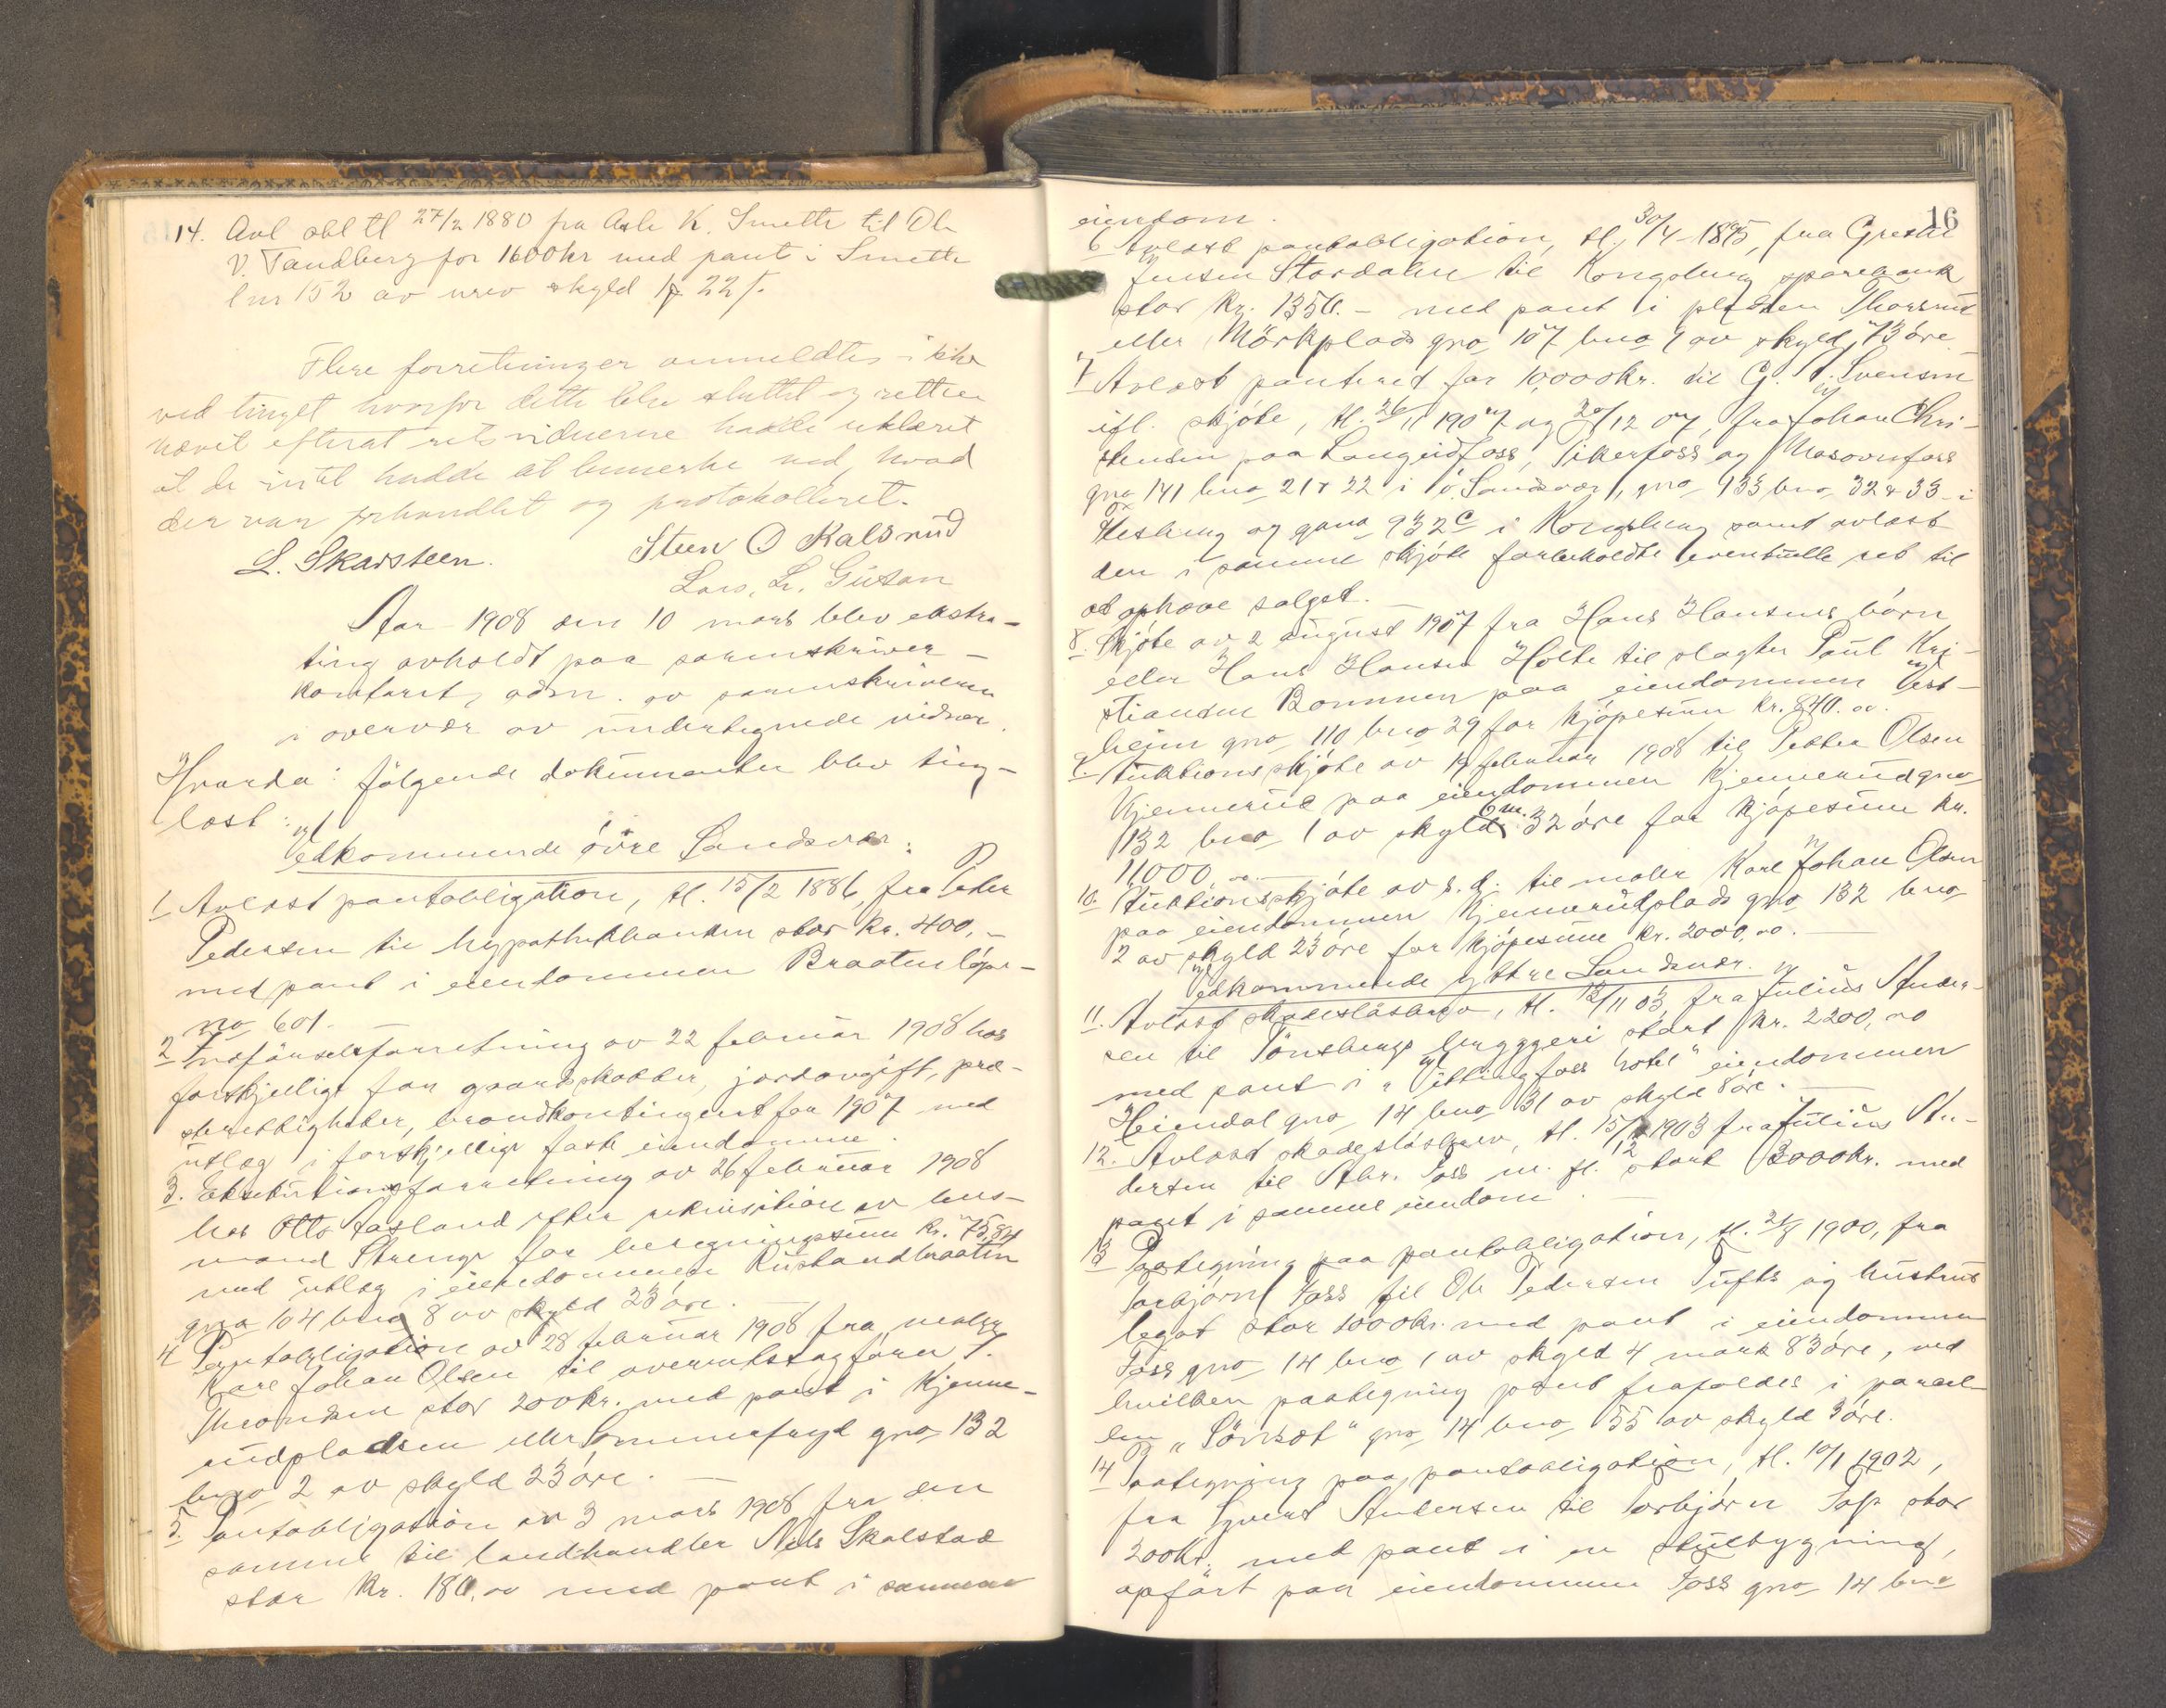 14. Avl obl tl 27/2 1880 fra Asle K. Smette til Ole
V. Tandberg for 1600kr med pant i Smette
lnr 152 av urev skyld 1 22
Flere forretninger anmeldtes ikke
ved tinget hvorfor dette blev sluttet og retten
hævet efterat retsvidnerne hadde erklæret
at de intet hadde at bemerke ved, hvad
der var forhandlet og protokolleret.
L. Skarsteen. Steen O Kalsrud
Lars. L. Gutan
Aar 1908 den 10 mars blev ekstra-
ting avholdt paa sorenskriver-
kontoret, adm. av sorenskriveren
i overvær av undertegnede vidner.
Hvorda: følgende dokumenter blev ting-
læst:
Vedkommende øvre Sandsvær:
1 Avlæst pantobligation, tl. 15/2 1886, fra Peder
Pedersen til hypothekbanken stor kr. 400,-
med pant i eiendommen Braaten løpe-
no 601. -
2 Indførselsforretning av 22 februar 1908 hos
forskjellige for grundskatter, jordavgift, præ-
sterettigheter, brandkontingent for 1907 med
utlæg i forskjellige faste eiendomme.
3. Eksekutionsforretning av 26 februar 1908
hos Otto Fosland efter rekvisition av lens-
mand Strenge for beregningssum kr. 75,84
med utlæg i eiendommen Ruslandbraaten
gno 104 bno 8 av skyld 23 øre. -
4 Pantobligation av 28 februar 1908 fra maler
Karl Johan Olsen til overretssagfører T.
Theondsen stor 200kr. med pant i Kjenne-
rudpladsen eller Sommerfryd gno 132
bno 2 av skyld 23 øre. -
5. Pantobligation av 3 mars 1908 fra den
samme til landhandler Nils Skalstad
stor kr. 180,00 med pant i samme
16
eiendom.
6 Avlæst pantobligation, tl. 30/4-1895, fra Grethe
Jensen Stordalen til Kongsberg sparebank
stor kr. 1350.- med pant i pladsen Thorsrud
eller Mörkplads gno 107 bno 1 av skyld 73 øre.
7 Avlæst panteret for 10,000kr. til G. T. Svensen
ifl. skjøte, tl. 26/11 1907 og 20/12 07, fra Johan Chri-
stensen paa Langeidfoss, Pikerfoss og Mosovnfoss
gno 141 bno 21 & 22 i ø. Sandsvær, gno 133 bno 32 & 33 i
Hesberg og gano 932c i Kongsberg samt avlæst
den i samme skjøte forbeholdte eventuelle ret til
at ophæve salget. -
8. Skjøte av 2 august 1907 fra Hans Hansens børn
eller Hans Hansen Holte til slagter Paul Kri-
stiansen Bommen paa eiendommen Vest-
heim gno 110 bno 29 for kjøpesum kr. 840.00.
9. Auktionsskjøte av 14 februar 1908 til Petter Olsen
Kjennerud paa eiendommen Kjennerud gno
132 bno 1 av skyld 6 m. 32 øre for kjøpesum kr.
11000,00.-
10. Auktionsskjøte av s. d. til maler Karl Johan Olsen
paa eiendommen Kjennerudplads gno 132 bno
2 av skyld 23 øre for kjøpesum kr. 2000,00. -
Vedkommende yttre Sandsvær.
11. Avlæst skadesløsbrev, tl. 12/11 03, fra Julius Ander-
sen til Tönsbergs bryggeri stort kr. 2200,00
med pant i "Vittingfoss hotel" eiendommen
Heimdal gno 14 bno 31 av skyld 8 øre. -
12. Avlæst skadesløsbrev, tl. 15/12 1903 fra Julius An-
dersen til Abr. Foss m. fl. stort 3000kr. med
pant i samme eiendom. -
13 Paategning paa pantobligation, tl. 21/8 1900, fra
Torbjørn Foss til Ole Pedersen Tufts og hustrus
legat stor 1000kr. med pant i eiendommen
Foss gno 14 bno 1 av skyld 4 mark 83 øre, ved
hvilken paategning pant frafaldes i parcel-
len "Sönsæt" gno 14 bno 55 av skyld 3 øre.
14 Paategning paa pantobligation, tl. 10/1 1902,
fra Syvert Andersen til Torbjørn Foss stor
200kr. med pant i en stuebygning,
opført paa eiendommen Foss gno 14 bno